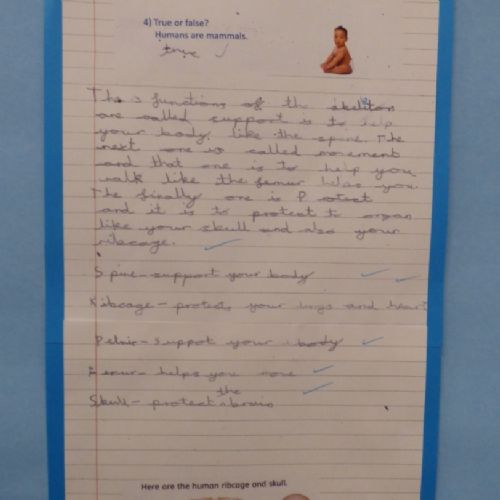 4) True or false?
Humans are mammals.
true
The 3 functions of the skeleton
are called support is to help
your body, like the spine. The
next one is called movement
and that one is to help you
walk like the femur helps you.
The finally one is P rotect
and it is to protect to organ
like your skull and also your
ribcage.
Spine - support your body
Ribcage - protect your lungs and heart
Pelvis - suppot your body
Femur - helps you move
the
Skull - protect brain
Here are the human ribcage and skull.